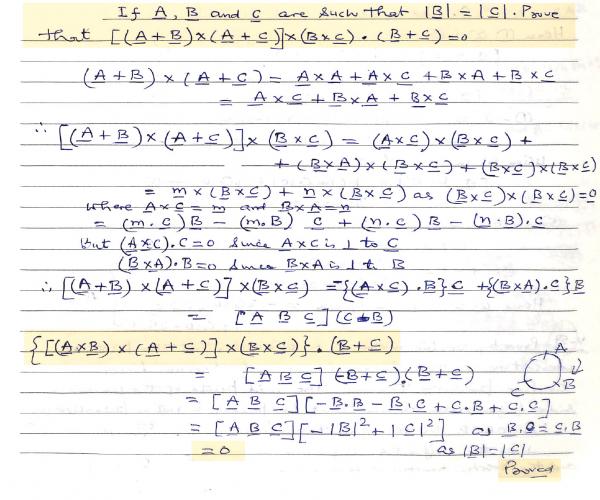 If A, B and C are such that |B| = |C|. Prove
that [(A+B)×(A+C)]×(B×C)·(B+C)=0
(A+B)×(A+C) = A×A + A×C + B×A + B×C
= A×C + B×A + B×C
∴ [(A+B)×(A+C)]×(B×C) = (A×C)×(B×C) +
+ (B×A)×(B×C) + (B×C)×(B×C)
= m×(B×C) + n×(B×C) as (B×C)×(B×C)=0
where A×C = m and B×A = n
= (m.C)B - (m.B) C + (n.C) B - (n.B).C
but (A×C).C=0 since A×C is ⊥ to C
(B×A).B=0 since B×A is ⊥ to B
∴ [(A+B)×(A+C)]×(B×C) = -{(A×C).B}C + {(B×A).C}B
= [A B C](C-B)
{[(A×B)×(A+C)]×(B×C)}.(B+C)
A
= [A B C] (-B+C).(B+C)
C B
= [A B C][-B.B - B.C + C.B + C.C]
= [A B C][-|B|² + |C|²] as B.C = C.B
= 0 as |B|=|C|
Proved